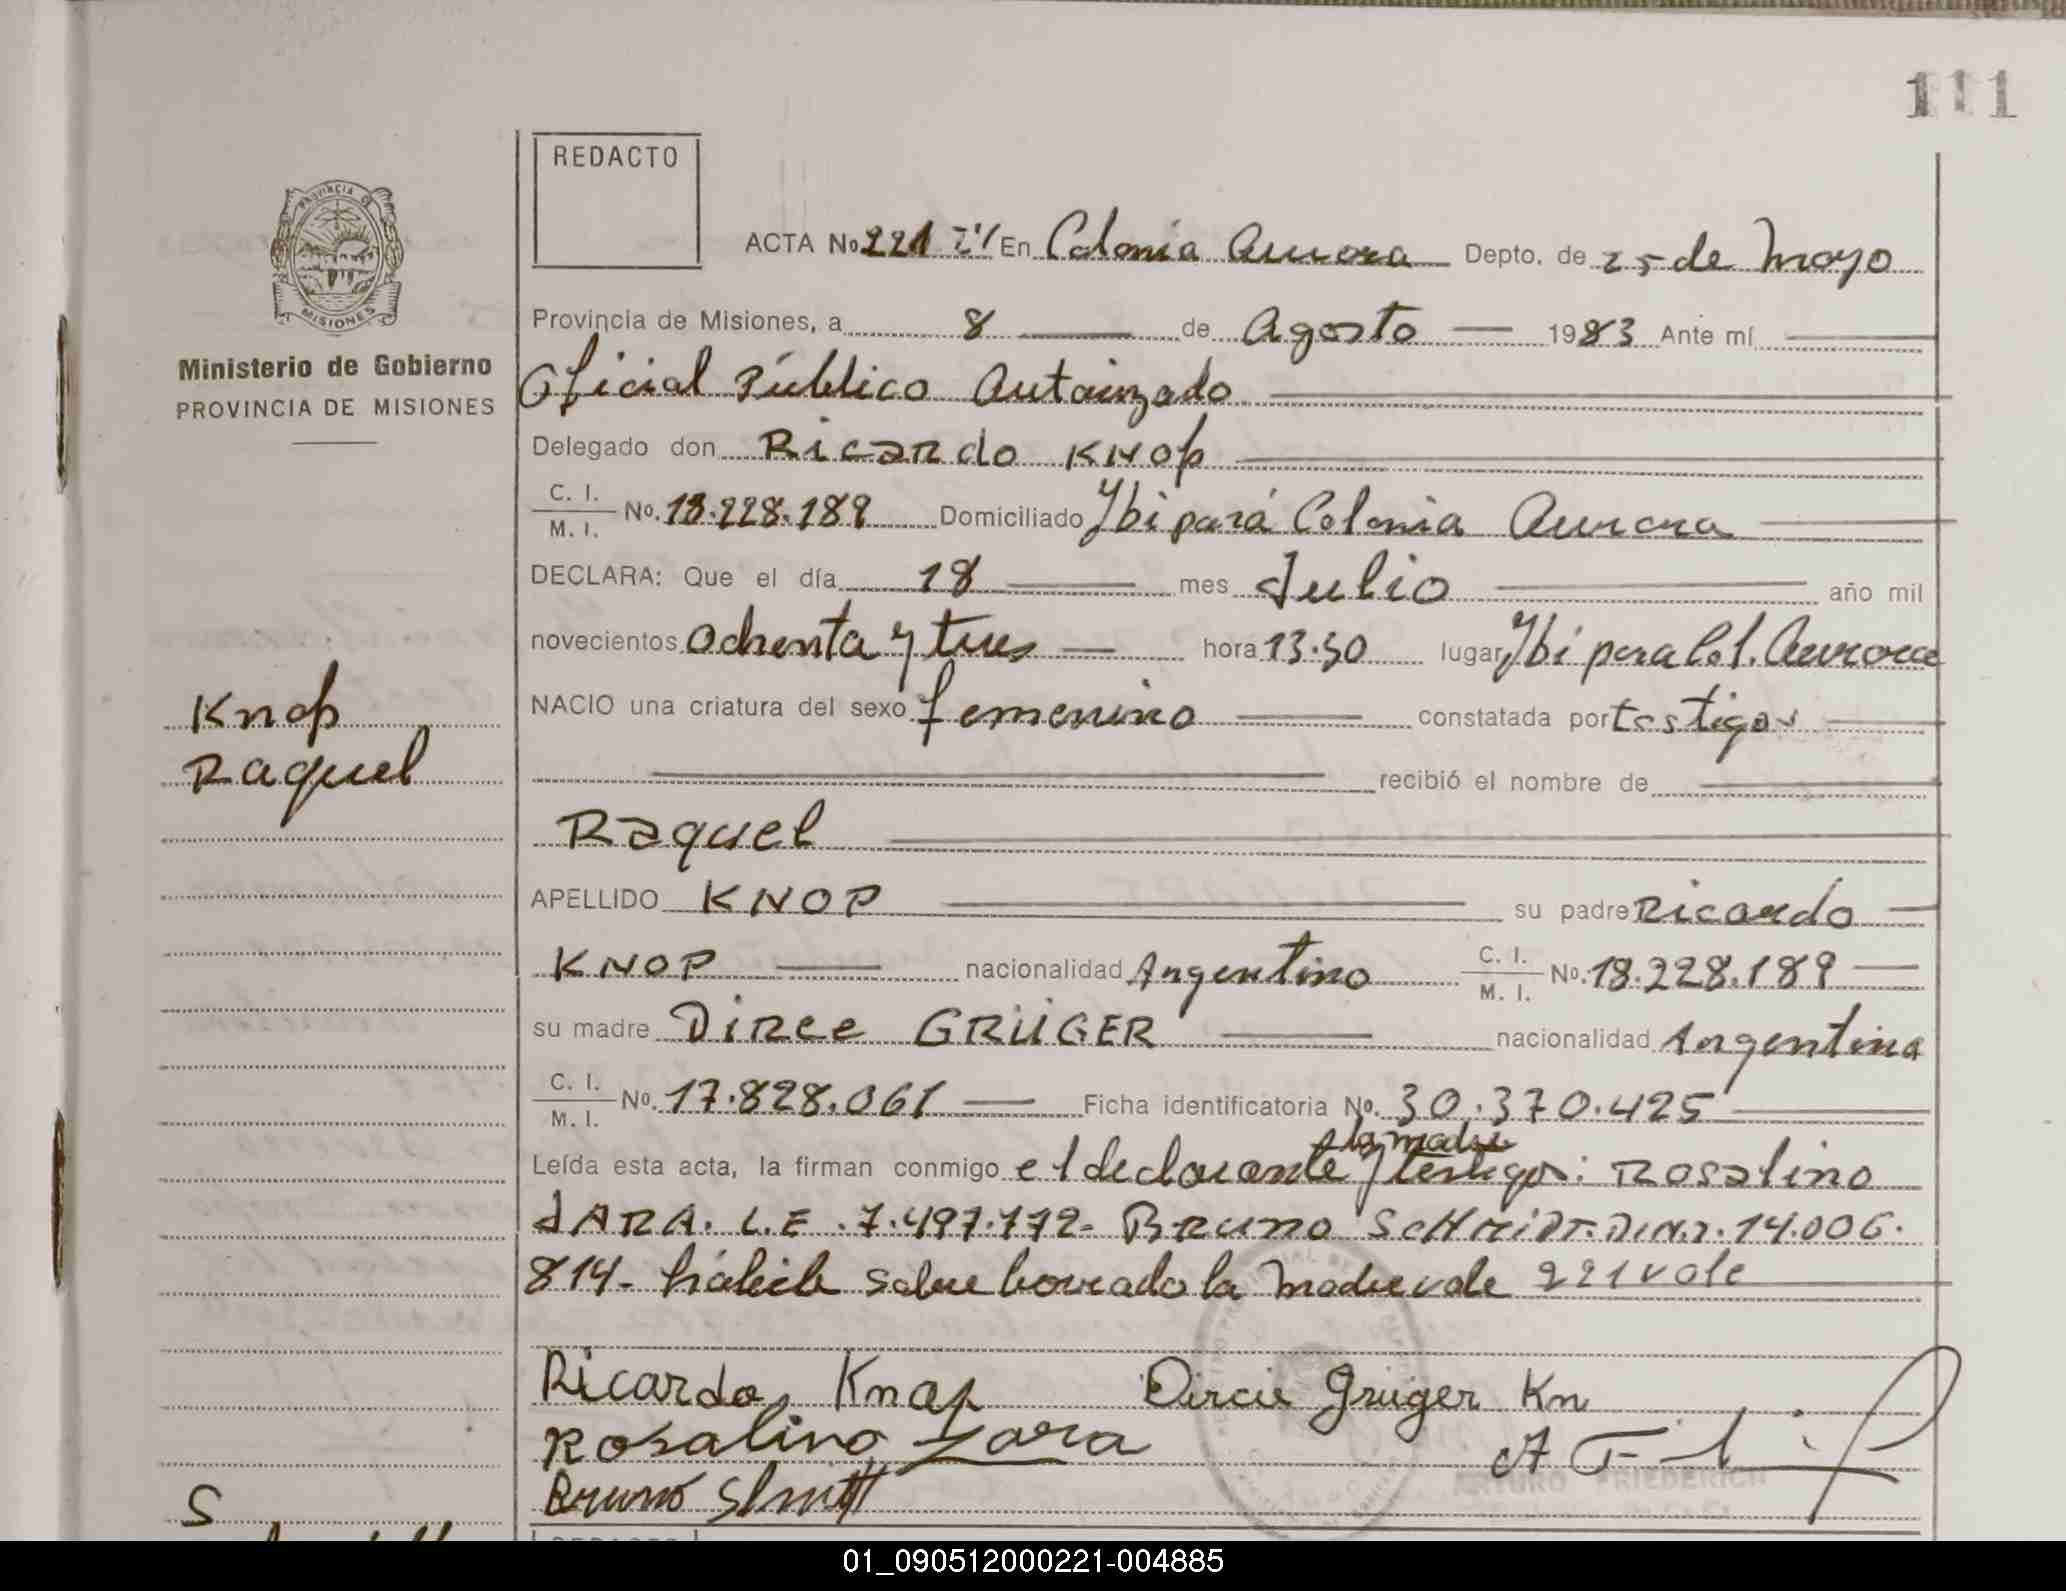 111
REDACTO
PROVINCIA DE
MISIONES
ACTA No 221 En Colonia Aurora Depto. de 25 de Mayo
Provincia de Misiones, a 8 de Agosto 1983 Ante mí
Ministerio de Gobierno
PROVINCIA DE MISIONES
Oficial Público Autorizado
Delegado don Ricardo KNOP
C. I.
M. I. No. 18.228.189 Domiciliado Ybipará Colonia Aurora
DECLARA: Que el día 18 mes Julio año mil
novecientos Ochenta y tres hora 13.30 lugar Ybi para Col. Aurora
Knop
Raquel
NACIO una criatura del sexo femenino constatada por testigos
recibió el nombre de
Raquel
APELLIDO KNOP su padre Ricardo
KNOP nacionalidad Argentino C. I.
M. I. No. 18.228.189
su madre Dirce GRÜGER nacionalidad Argentina
C. I.
M. I. No. 17.828.061 Ficha identificatoria No. 30.370.425
la madre
Leída esta acta, la firman conmigo el declarante y testigos: Rosalino
JARA. L.E. 7.497.772- Bruno SCHMIDT. D.N.I. 14.006.
814- hábiles sobre borrado la madre vale 221 vale
Ricardo Knop Dircie Grüger Kn
Rosalino Jara
ARTURO FRIEDERICH
Bruno Shmitt
S
01_090512000221-004885